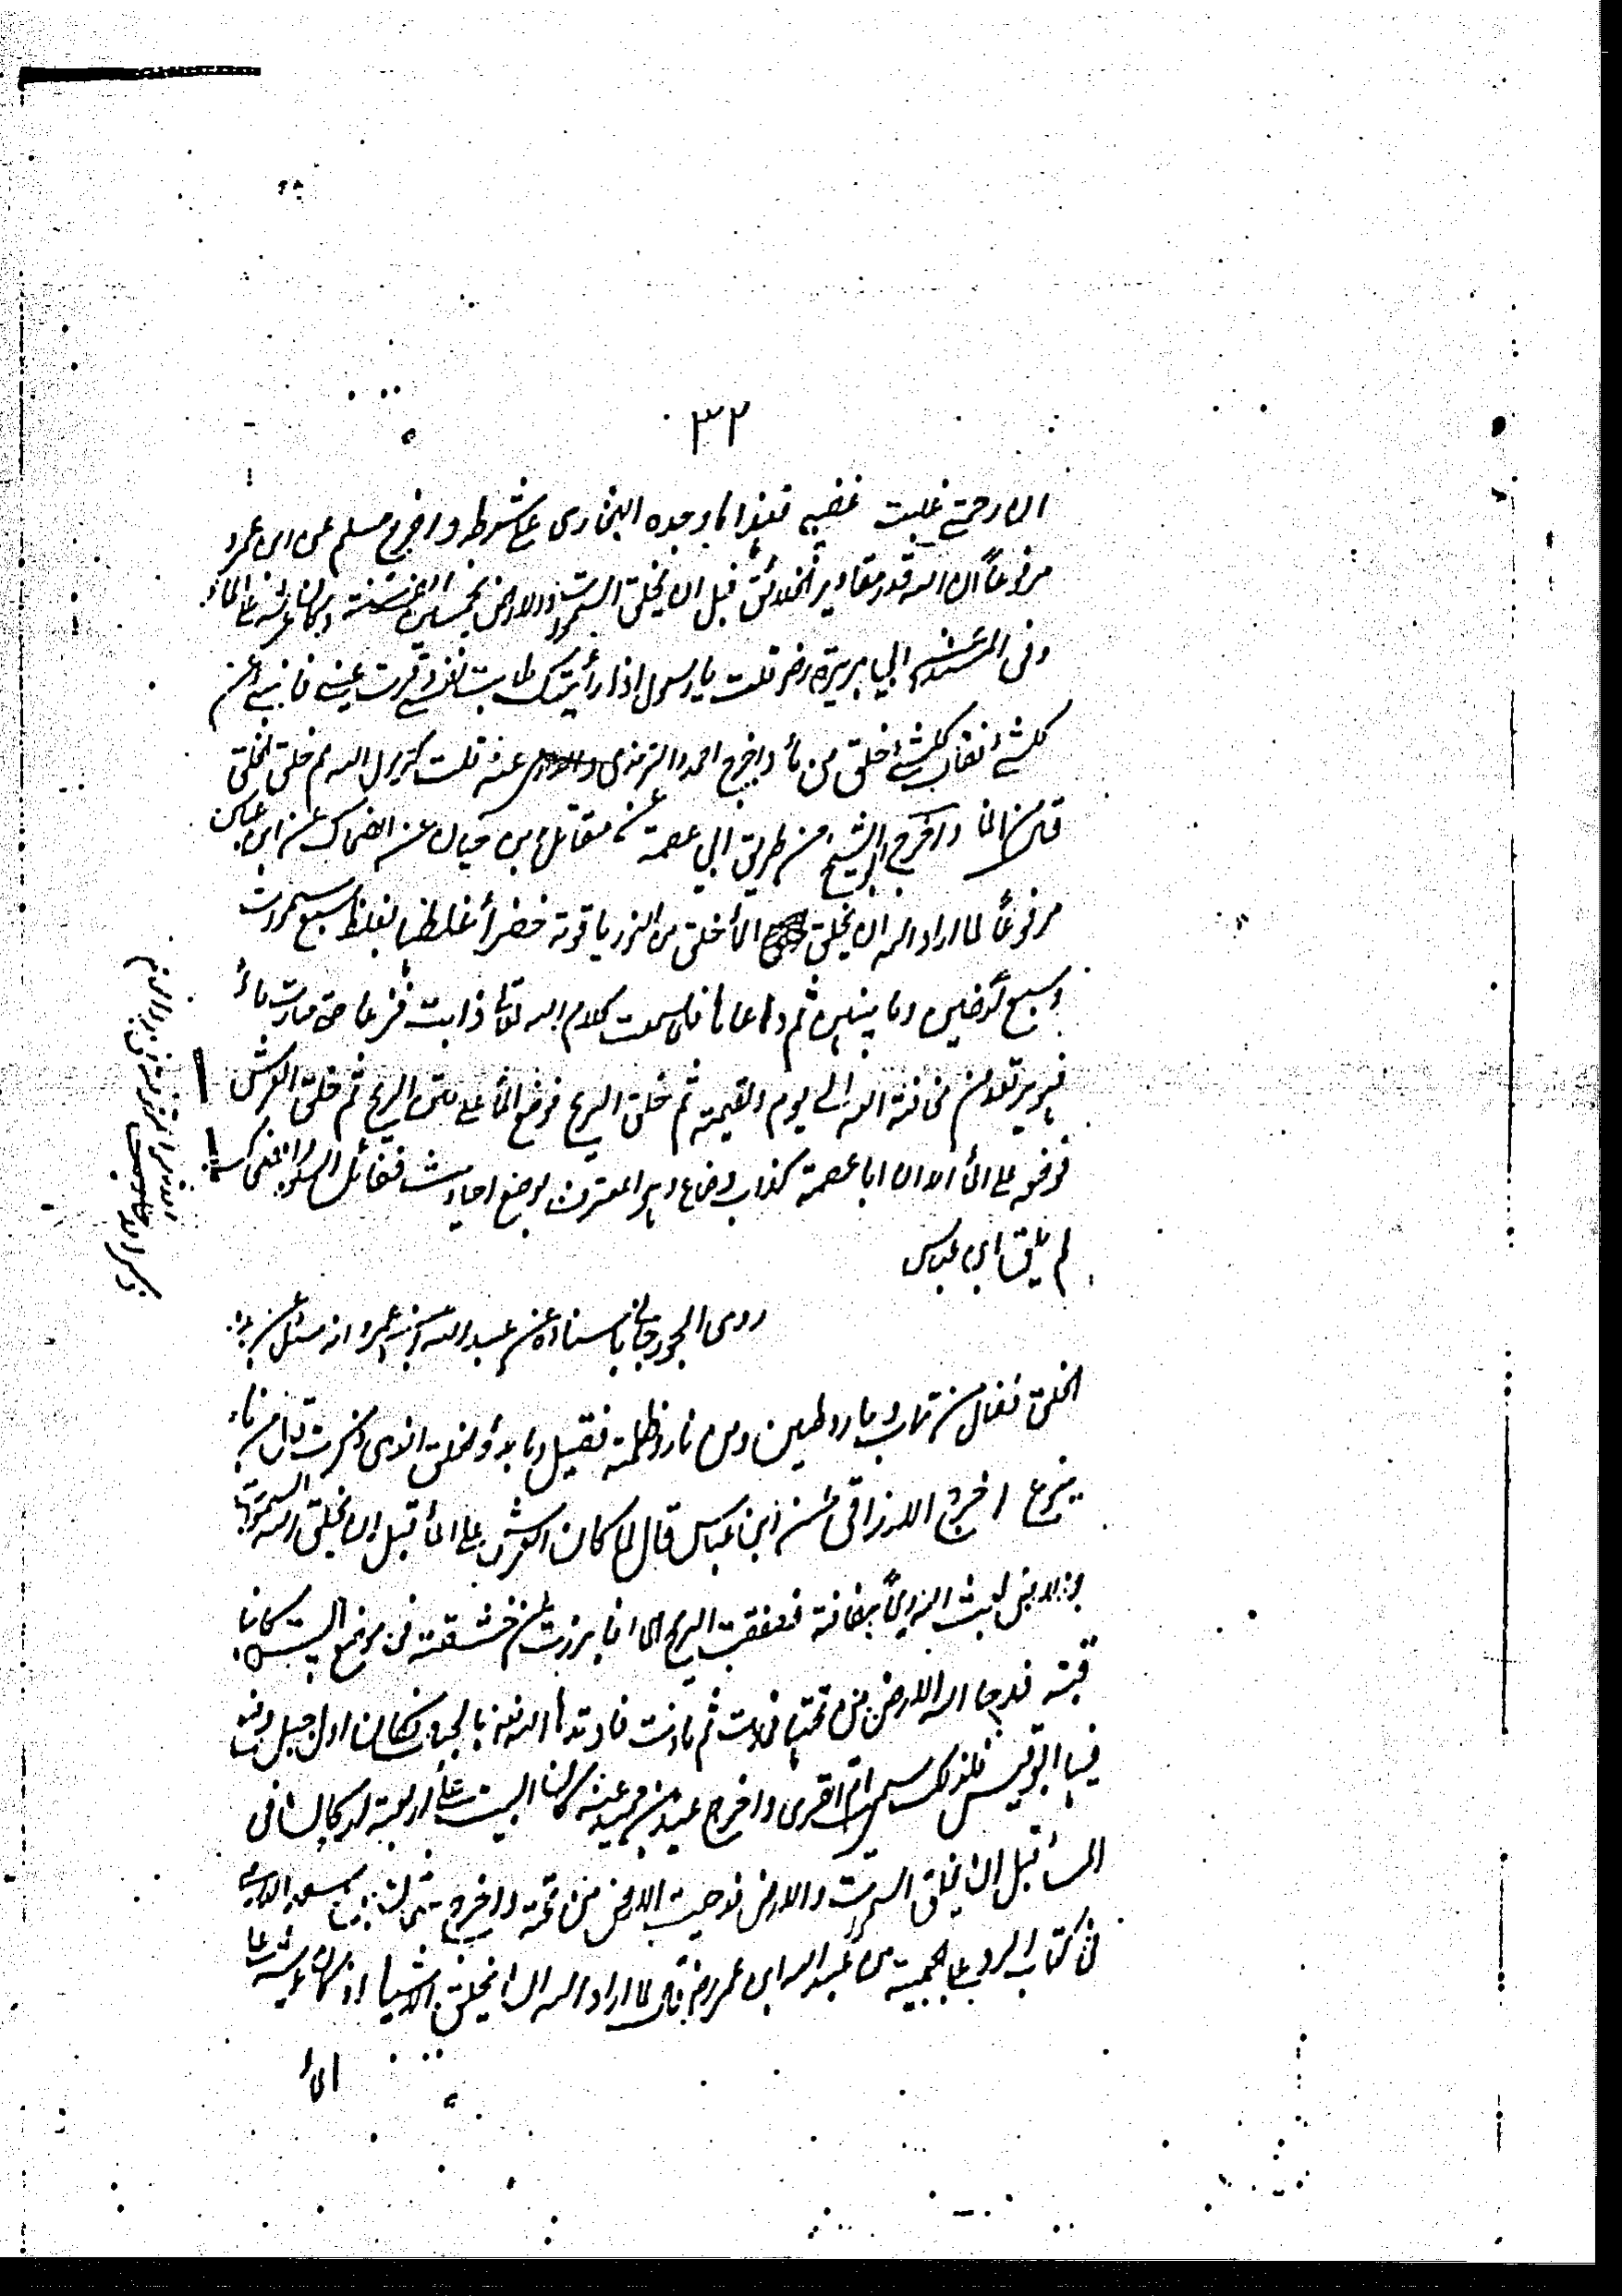 ٣٢
ان رحمتي غلبت غضبي فهذا ما وجده البخاري على شرطه واخرج مسلم عن ابن عمرو
مرفوعاً ان الله قدر مقادير الخلائق قبل ان يخلق السموت والارض بخمسين الف سنة وكان عرشه على الماء
وفي المسند ابي هريرة رضـ قلت يا رسول اذا رأيتك طابت نفسي وقرت عيني فانبئني عن
كلشئ فقال كلشئ خلق من مأ واخرج احمد والترمذى عنه قلت يرسول الله مم خلق الخلق
قال من الما واخرج ابو الشيخ من طريق ابي عصمة عن مقاتل ابن حيان عن الضحاك عن ابن عباس
مرفوعاً لما اراد الله ان يخلق المأ خلق من النور ياقوتة خضرأ غلظها كغلظ سبع سموت
وسبع ارضين وما بينهن ثم دعاها فلما سمعت كلام الله تعالى ذابت فزعا حتى صارت مأ
فهو يرتعد من مخافة الله الى يوم القيمة ثم خلق الريح فوضع المأ على متن الريح ثم خلق العرش
فوضعه على المأ الا ان ابا عصمة كذاب وضاع وهو المعترف بوضع احاديث فضائل السور الضحاك
لم يلق ابن عباس
روى الجوزجاني باسناده عن عبد الله ابن عمرو انه سئل عن بدء
الخلق فقال من تراب وماء وطين ومن نار وظلمة فقيل وما بدؤ الخلق الذى ذكرت قال من ماء
ينبوع اخرج الازرقى عن ابن عباس قال لما كان العرش على المأ قبل ان يخلق الله السموت
والارض بعث الله ريحاً هفافة فصفقت الريح الما فابرزت عن خشفة فى موضع البيت كانها
قبة فدحا الله الارض من تحتها فمادت ثم مادت فاوتدها الله بالجبال فكان اول جبل وضع
فيها ابو قبيس فلذلك سميت ام القرى واخرج عبد بن حميد عنه كان البيت على اربعة اركان فى
المأ قبل ان يخلق السموت والارض فدحيت الارض من تحته واخرج عثمن بن سعيد الدارمى
فى كتاب الرد على الجهمية عن عبد الله ابن عمر رضـ قال لما اراد الله ان يخلق الاشيا اذ كان عرشه على
المأ